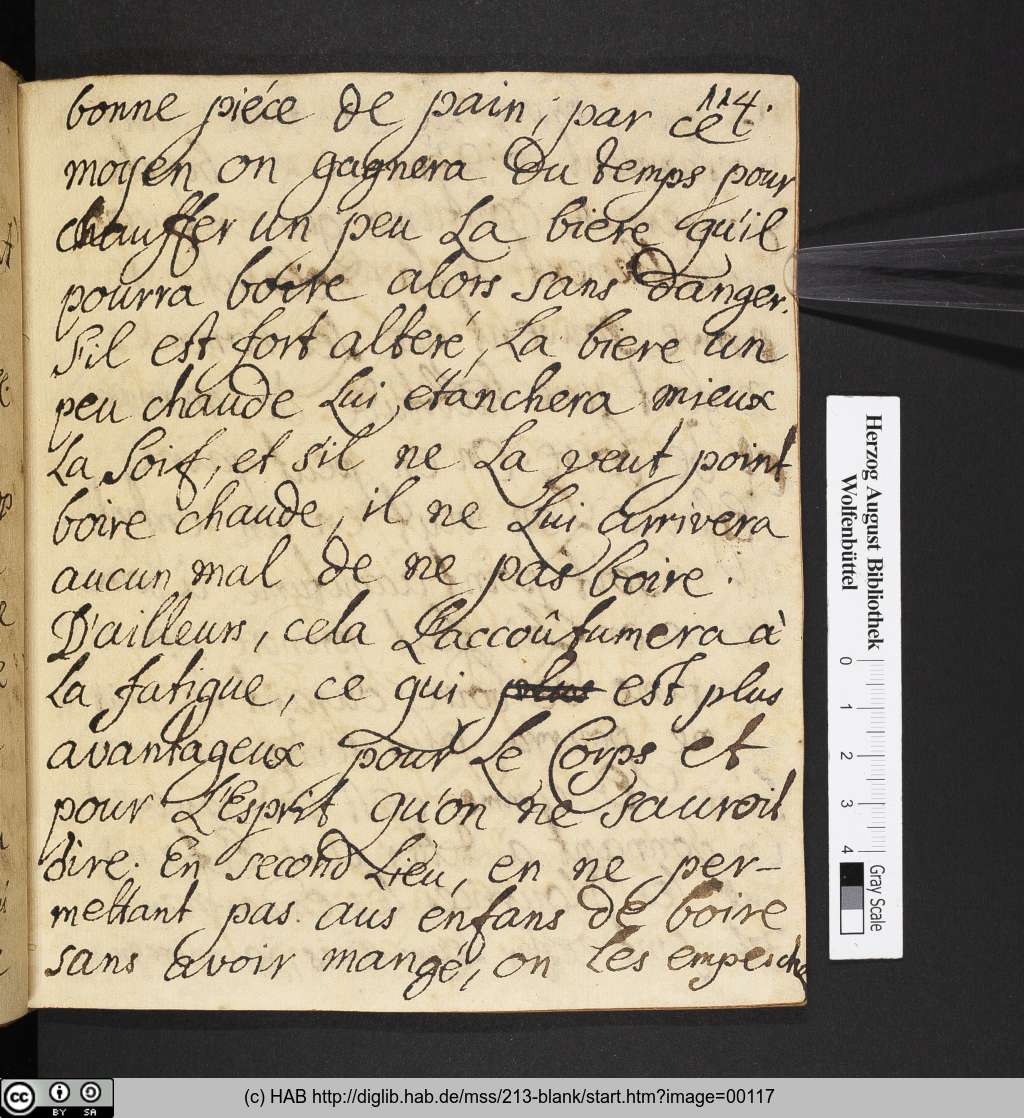 114.
bonne piéce de pain; par cet
moyen on gagnera du temps pour
chauffer un peu La biere qu'il
pourra boire alors sans danger.
S'il est fort alteré, La biere un
peu chaude Lui étanchera mieux
La Soif, et s'il ne La veut point
boire chaude, il ne Lui arrivera
aucun mal de ne pas boire.
D'ailleurs, cela L'accoûtumera à
La fatigue, ce qui plus est plus
avantageux pour Le Corps et
pour L'Esprit qu'on ne sauroit
dire. En second Lieu, en ne per-
mettant pas aus enfans de boire
sans avoir mangé, on Les empesche
Herzog August Bibliothek
Wolfenbüttel
0 1 2 3 4
Gray Scale
cc BY SA
(c) HAB http://diglib.hab.de/mss/213-blank/start.htm?image=00117